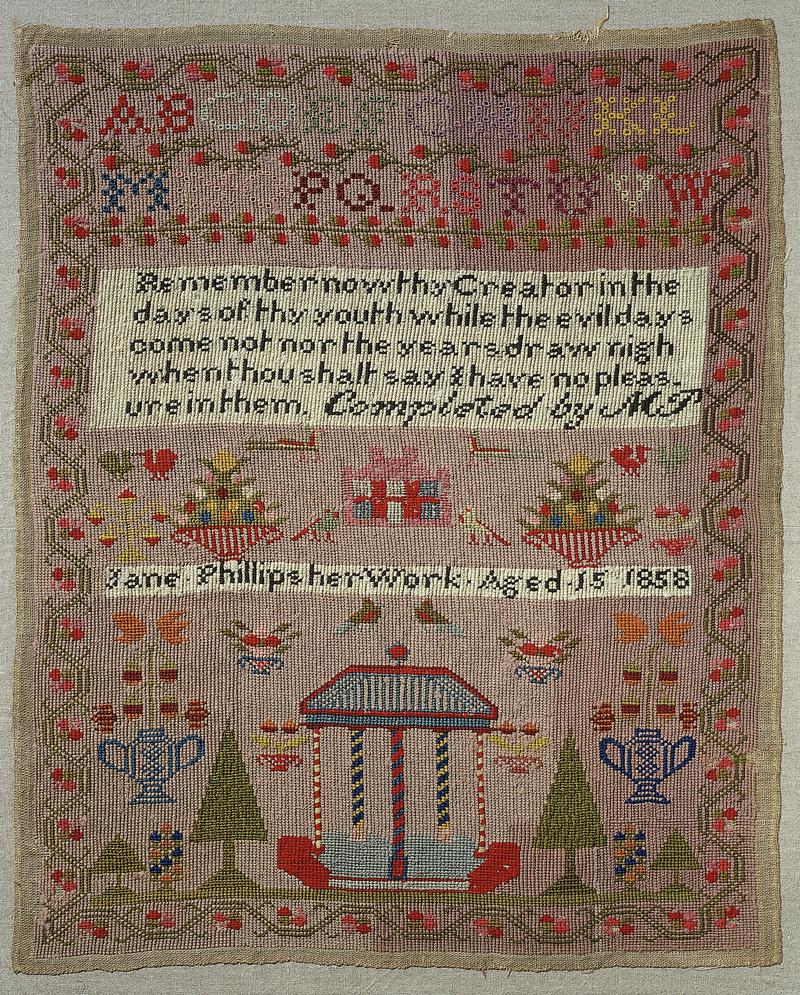 ABCDEFGHIJKL
M PQ RSTUVW
Remember now thy Creator in the
days of thy youth while the evil days
come not nor the years draw nigh
when thou shalt say I have no pleas.
ure in them. Completed by MP
Jane · Phillips her Work · Aged · 15 1858